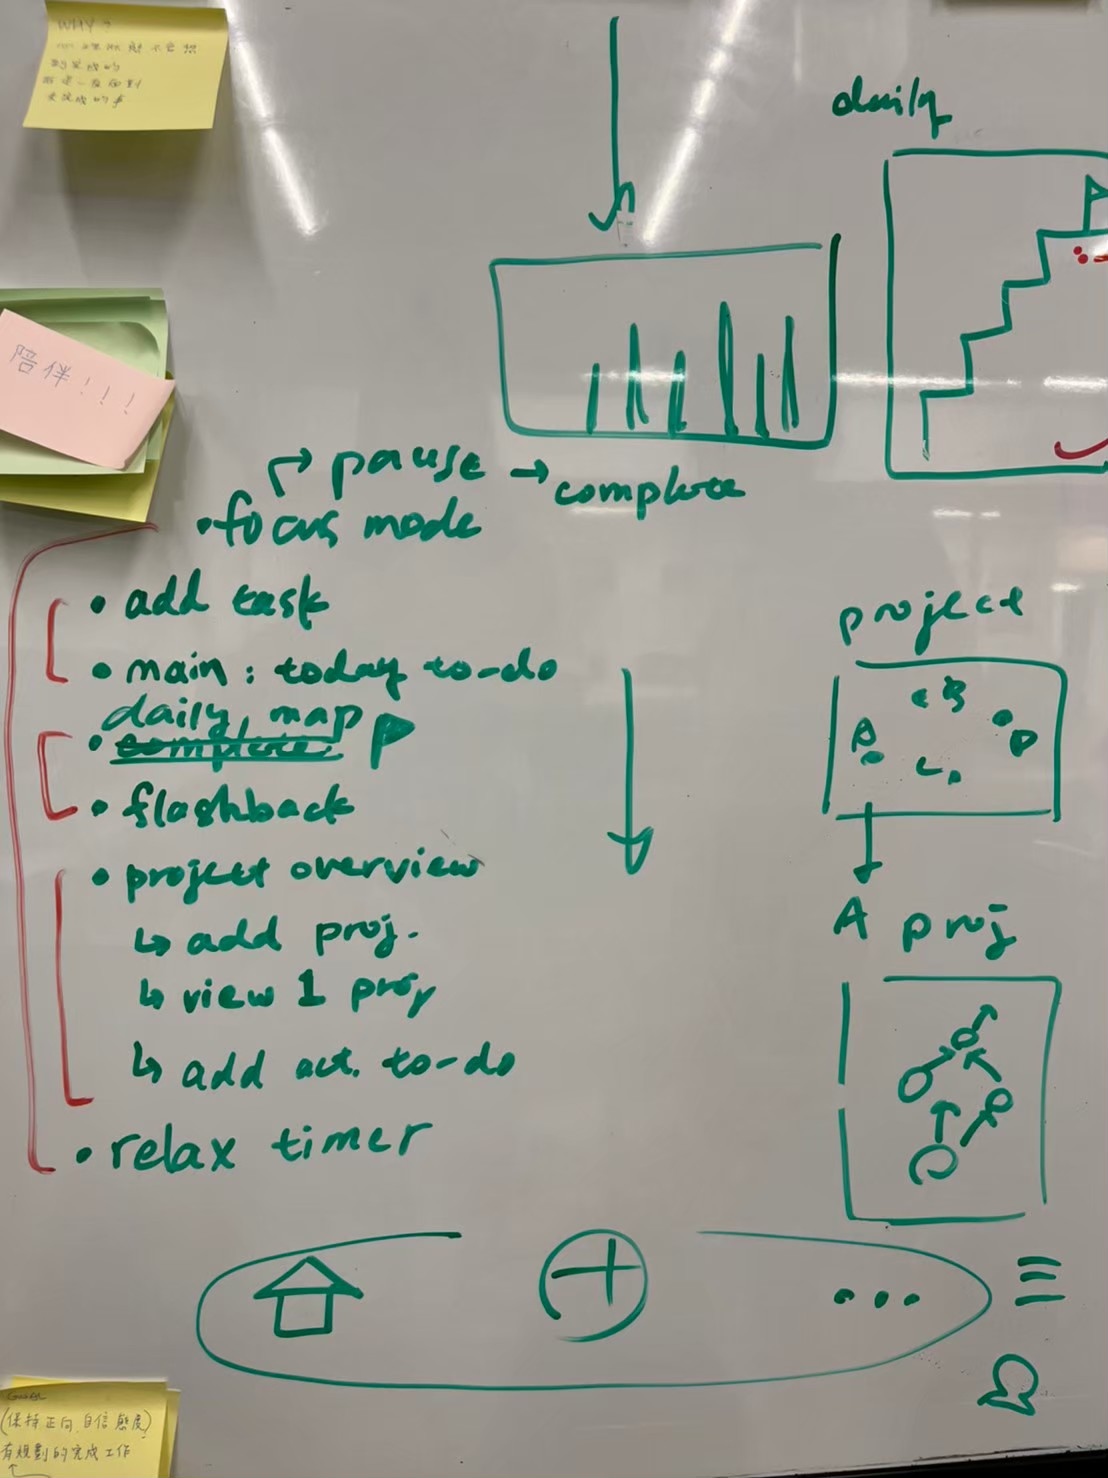 WHY?
daily
陪伴!!!
pause → complete
• focus mode
• add task
• main : today to-do
daily, map
• complete
• flashback
• project overview
↳ add proj.
↳ view 1 proj
↳ add act. to-do
• relax timer
project
A
B
C
D
A proj
(保持正向、自信態度)
有規劃的完成工作